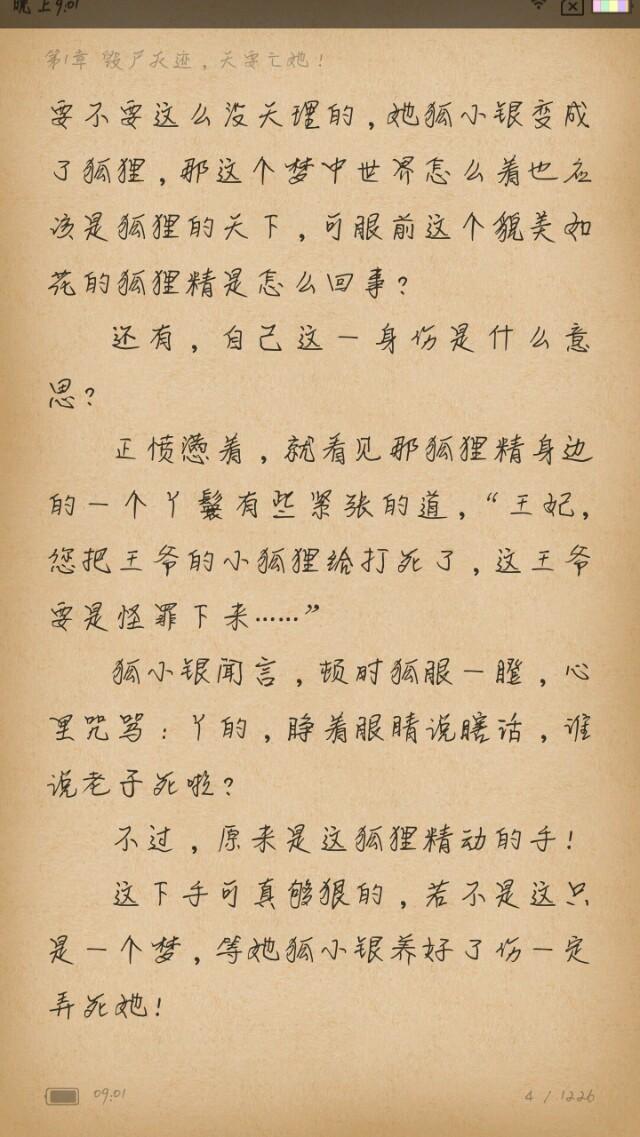 晚上9:01
第1章 毁尸灭迹，天要亡她！
要不要这么没天理的，她狐小银变成
了狐狸，那这个梦中世界怎么着也应
该是狐狸的天下，可眼前这个貌美如
花的狐狸精是怎么回事？
还有，自己这一身伤是什么意
思？
正愤懑着，就看见那狐狸精身边
的一个丫鬟有些紧张的道，“王妃，
您把王爷的小狐狸给打死了，这王爷
要是怪罪下来……”
狐小银闻言，顿时狐眼一瞪，心
里咒骂：丫的，睁着眼睛说瞎话，谁
说老子死啦？
不过，原来是这狐狸精动的手！
这下手可真够狠的，若不是这只
是一个梦，等她狐小银养好了伤一定
弄死她！
09:01
4 / 1226